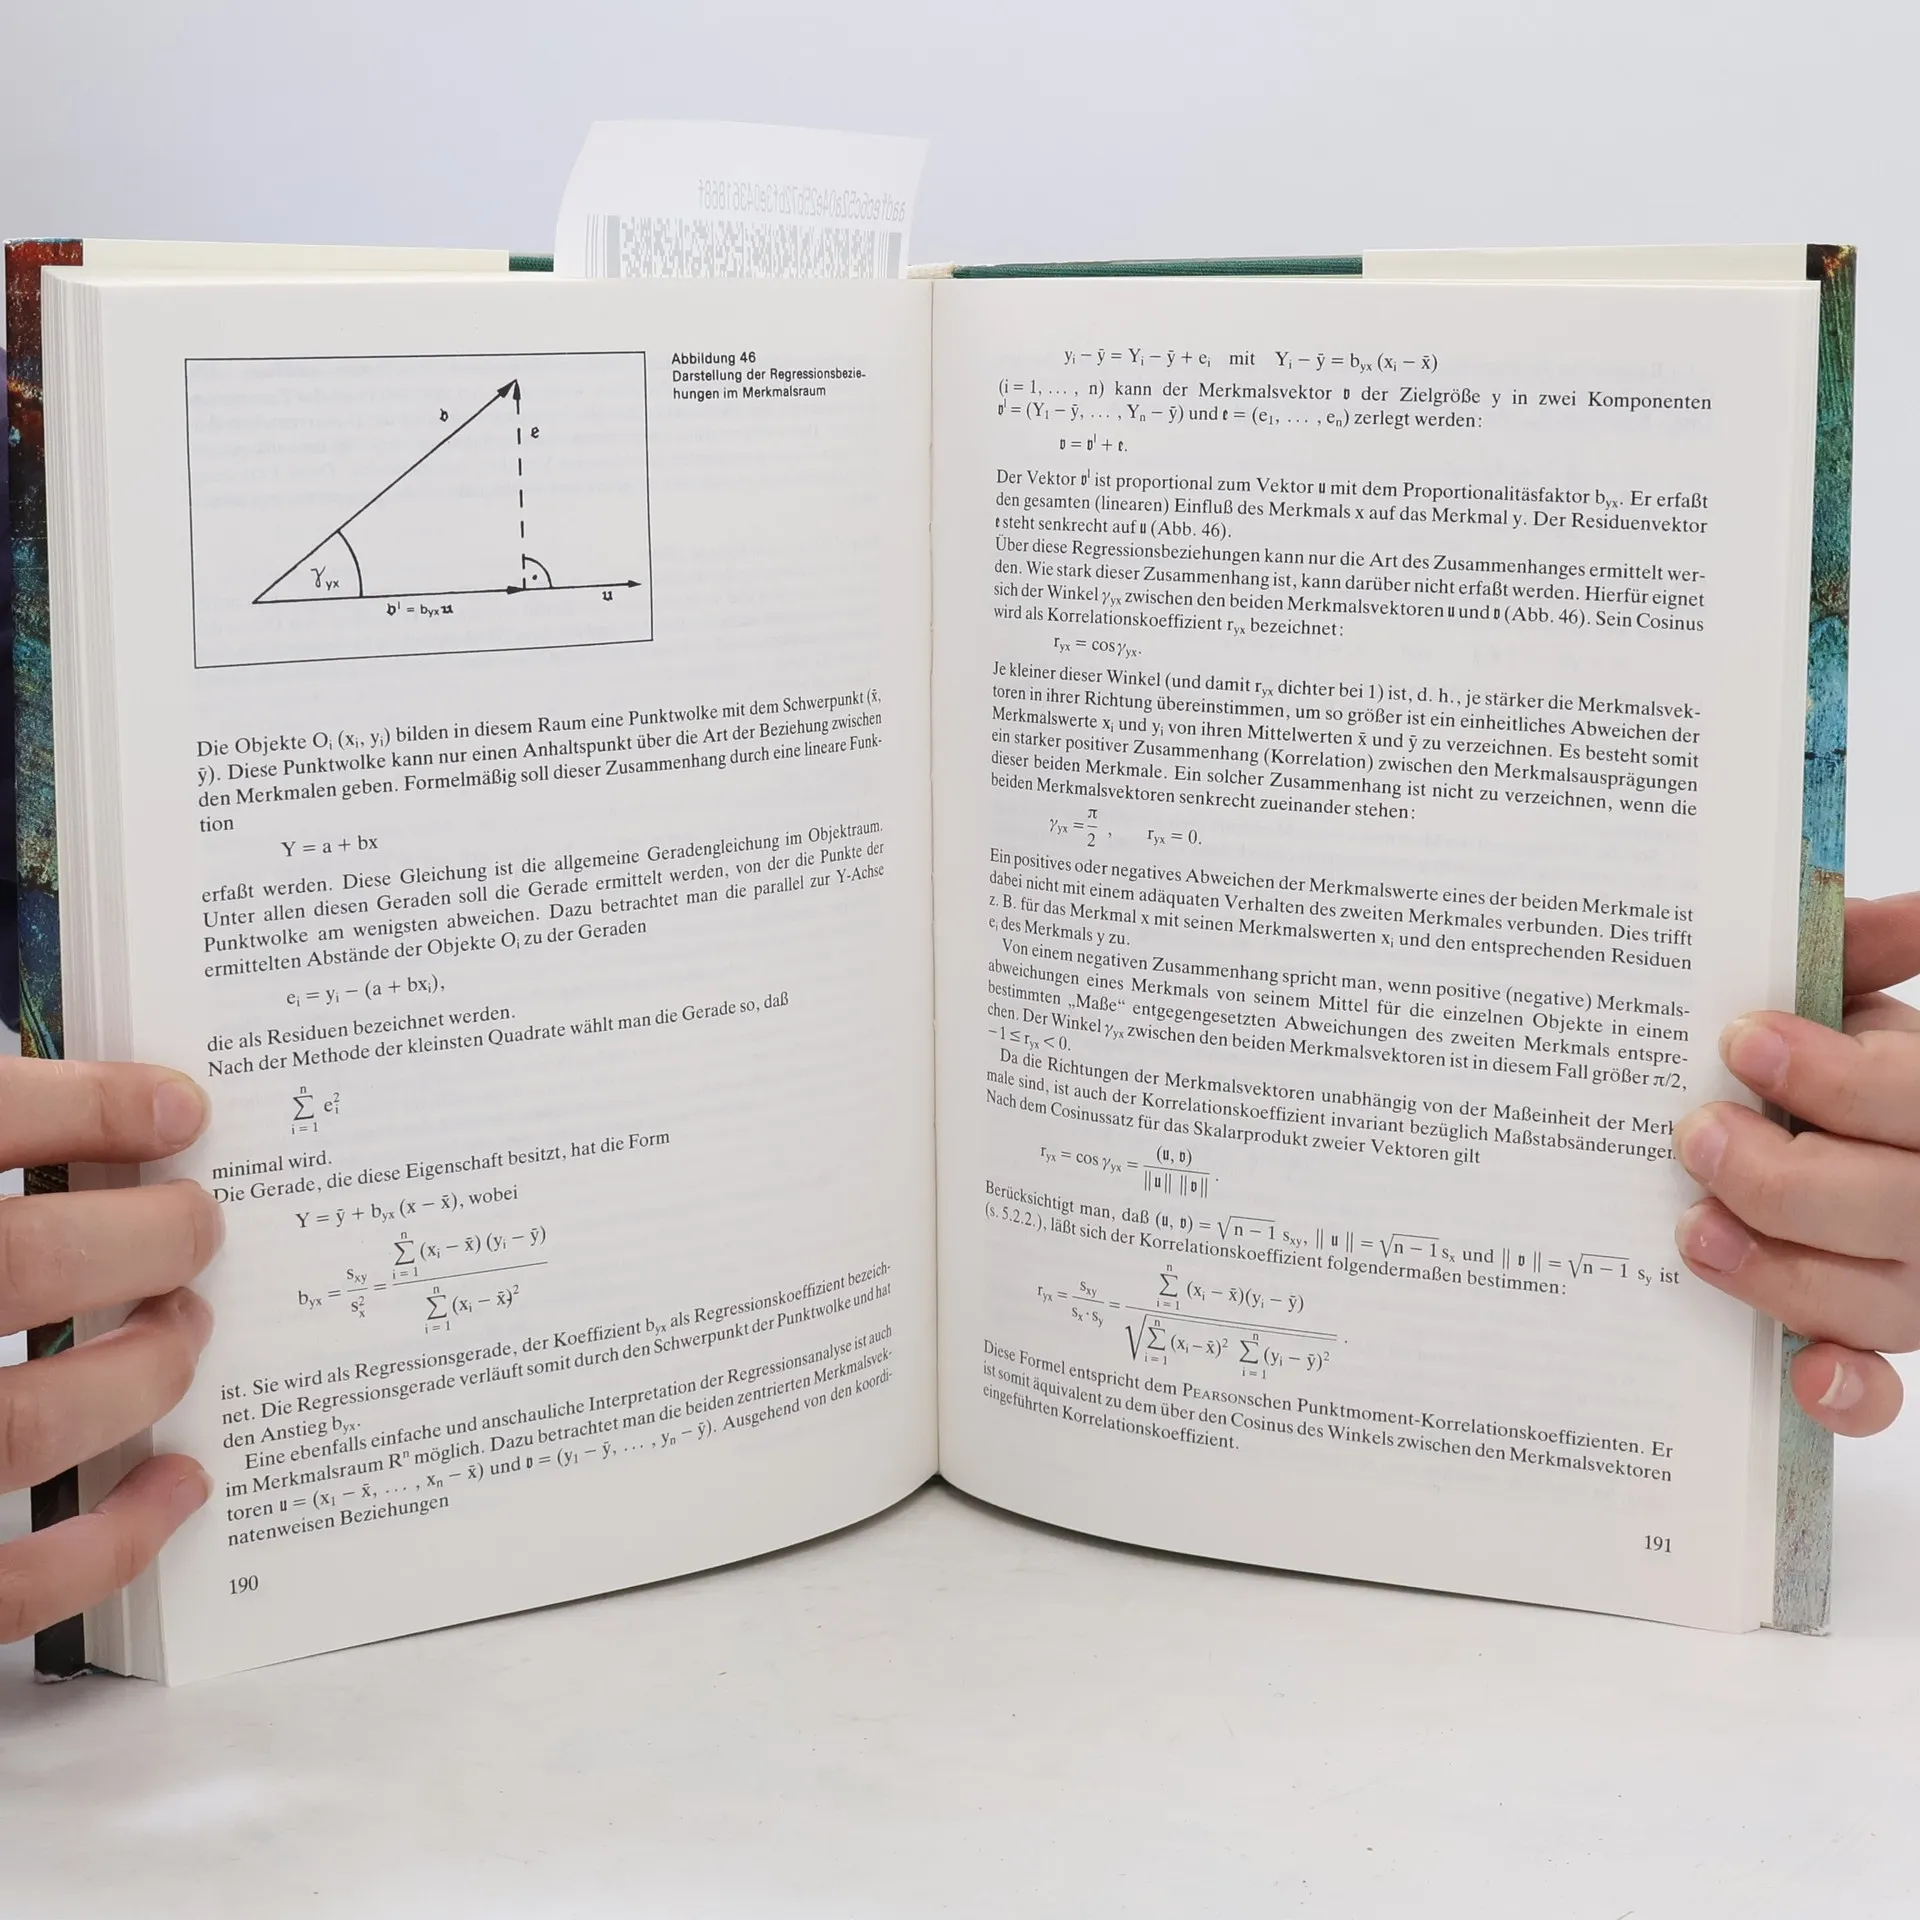 aadfec6c52a04e25b72bf3e04361868f
Abbildung 46
Darstellung der Regressionsbezie-
hungen im Merkmalsraum
𝔳
e
γyx
𝔳' = byx𝔲
𝔲
Die Objekte Oi (xi, yi) bilden in diesem Raum eine Punktwolke mit dem Schwerpunkt (x̄,
ȳ). Diese Punktwolke kann nur einen Anhaltspunkt über die Art der Beziehung zwischen
den Merkmalen geben. Formelmäßig soll dieser Zusammenhang durch eine lineare Funk-
tion
Y = a + bx
erfaßt werden. Diese Gleichung ist die allgemeine Geradengleichung im Objektraum.
Unter allen diesen Geraden soll die Gerade ermittelt werden, von der die Punkte der
Punktwolke am wenigsten abweichen. Dazu betrachtet man die parallel zur Y-Achse
ermittelten Abstände der Objekte Oi zu der Geraden
ei = yi − (a + bxi),
die als Residuen bezeichnet werden.
Nach der Methode der kleinsten Quadrate wählt man die Gerade so, daß
n
∑ ei²
i = 1
minimal wird.
Die Gerade, die diese Eigenschaft besitzt, hat die Form
Y = ȳ + byx (x − x̄), wobei
byx = sxy / sx² = ∑ⁿi = 1 (xi − x̄) (yi − ȳ) / ∑ⁿi = 1 (xi − x̄)²
ist. Sie wird als Regressionsgerade, der Koeffizient byx als Regressionskoeffizient bezeich-
net. Die Regressionsgerade verläuft somit durch den Schwerpunkt der Punktwolke und hat
den Anstieg byx.
Eine ebenfalls einfache und anschauliche Interpretation der Regressionsanalyse ist auch
im Merkmalsraum Rⁿ möglich. Dazu betrachtet man die beiden zentrierten Merkmalsvek-
toren 𝔲 = (x1 − x̄, ... , xn − x̄) und 𝔳 = (y1 − ȳ, ... , yn − ȳ). Ausgehend von den koordi-
natenweisen Beziehungen
190
yi − ȳ = Yi − ȳ + ei mit Yi − ȳ = byx (xi − x̄)
(i = 1, ... , n) kann der Merkmalsvektor 𝔳 der Zielgröße y in zwei Komponenten
𝔳' = (Y1 − ȳ, ... , Yn − ȳ) und 𝔢 = (e1, ... , en) zerlegt werden:
𝔳 = 𝔳' + 𝔢.
Der Vektor 𝔳' ist proportional zum Vektor 𝔲 mit dem Proportionalitäsfaktor byx. Er erfaßt
den gesamten (linearen) Einfluß des Merkmals x auf das Merkmal y. Der Residuenvektor
𝔢 steht senkrecht auf 𝔲 (Abb. 46).
Über diese Regressionsbeziehungen kann nur die Art des Zusammenhanges ermittelt wer-
den. Wie stark dieser Zusammenhang ist, kann darüber nicht erfaßt werden. Hierfür eignet
sich der Winkel γyx zwischen den beiden Merkmalsvektoren 𝔲 und 𝔳 (Abb. 46). Sein Cosinus
wird als Korrelationskoeffizient ryx bezeichnet:
ryx = cosγyx.
Je kleiner dieser Winkel (und damit ryx dichter bei 1) ist, d. h., je stärker die Merkmalsvek-
toren in ihrer Richtung übereinstimmen, um so größer ist ein einheitliches Abweichen der
Merkmalswerte xi und yi von ihren Mittelwerten x̄ und ȳ zu verzeichnen. Es besteht somit
ein starker positiver Zusammenhang (Korrelation) zwischen den Merkmalsausprägungen
dieser beiden Merkmale. Ein solcher Zusammenhang ist nicht zu verzeichnen, wenn die
beiden Merkmalsvektoren senkrecht zueinander stehen:
γyx = π/2 , ryx = 0.
Ein positives oder negatives Abweichen der Merkmalswerte eines der beiden Merkmale ist
dabei nicht mit einem adäquaten Verhalten des zweiten Merkmales verbunden. Dies trifft
z. B. für das Merkmal x mit seinen Merkmalswerten xi und den entsprechenden Residuen
ei des Merkmals y zu.
Von einem negativen Zusammenhang spricht man, wenn positive (negative) Merkmals-
abweichungen eines Merkmals von seinem Mittel für die einzelnen Objekte in einem
bestimmten „Maße“ entgegengesetzten Abweichungen des zweiten Merkmals entspre-
chen. Der Winkel γyx zwischen den beiden Merkmalsvektoren ist in diesem Fall größer π/2,
−1 ≤ ryx < 0.
Da die Richtungen der Merkmalsvektoren unabhängig von der Maßeinheit der Merk
male sind, ist auch der Korrelationskoeffizient invariant bezüglich Maßstabsänderungen.
Nach dem Cosinussatz für das Skalarprodukt zweier Vektoren gilt
ryx = cos γyx = (𝔲, 𝔳) / ||𝔲|| ||𝔳|| .
Berücksichtigt man, daß (𝔲, 𝔳) = √n − 1 sxy, || 𝔲 || = √n − 1 sx und || 𝔳 || = √n − 1 sy ist
(s. 5.2.2.), läßt sich der Korrelationskoeffizient folgendermaßen bestimmen:
ryx = sxy / sx · sy = ∑ⁿi = 1 (xi − x̄)(yi − ȳ) / √∑ⁿi = 1 (xi − x̄)² ∑ⁿi = 1 (yi − ȳ)² .
Diese Formel entspricht dem PEARSONschen Punktmoment-Korrelationskoeffizienten. Er
ist somit äquivalent zu dem über den Cosinus des Winkels zwischen den Merkmalsvektoren
eingeführten Korrelationskoeffizient.
191